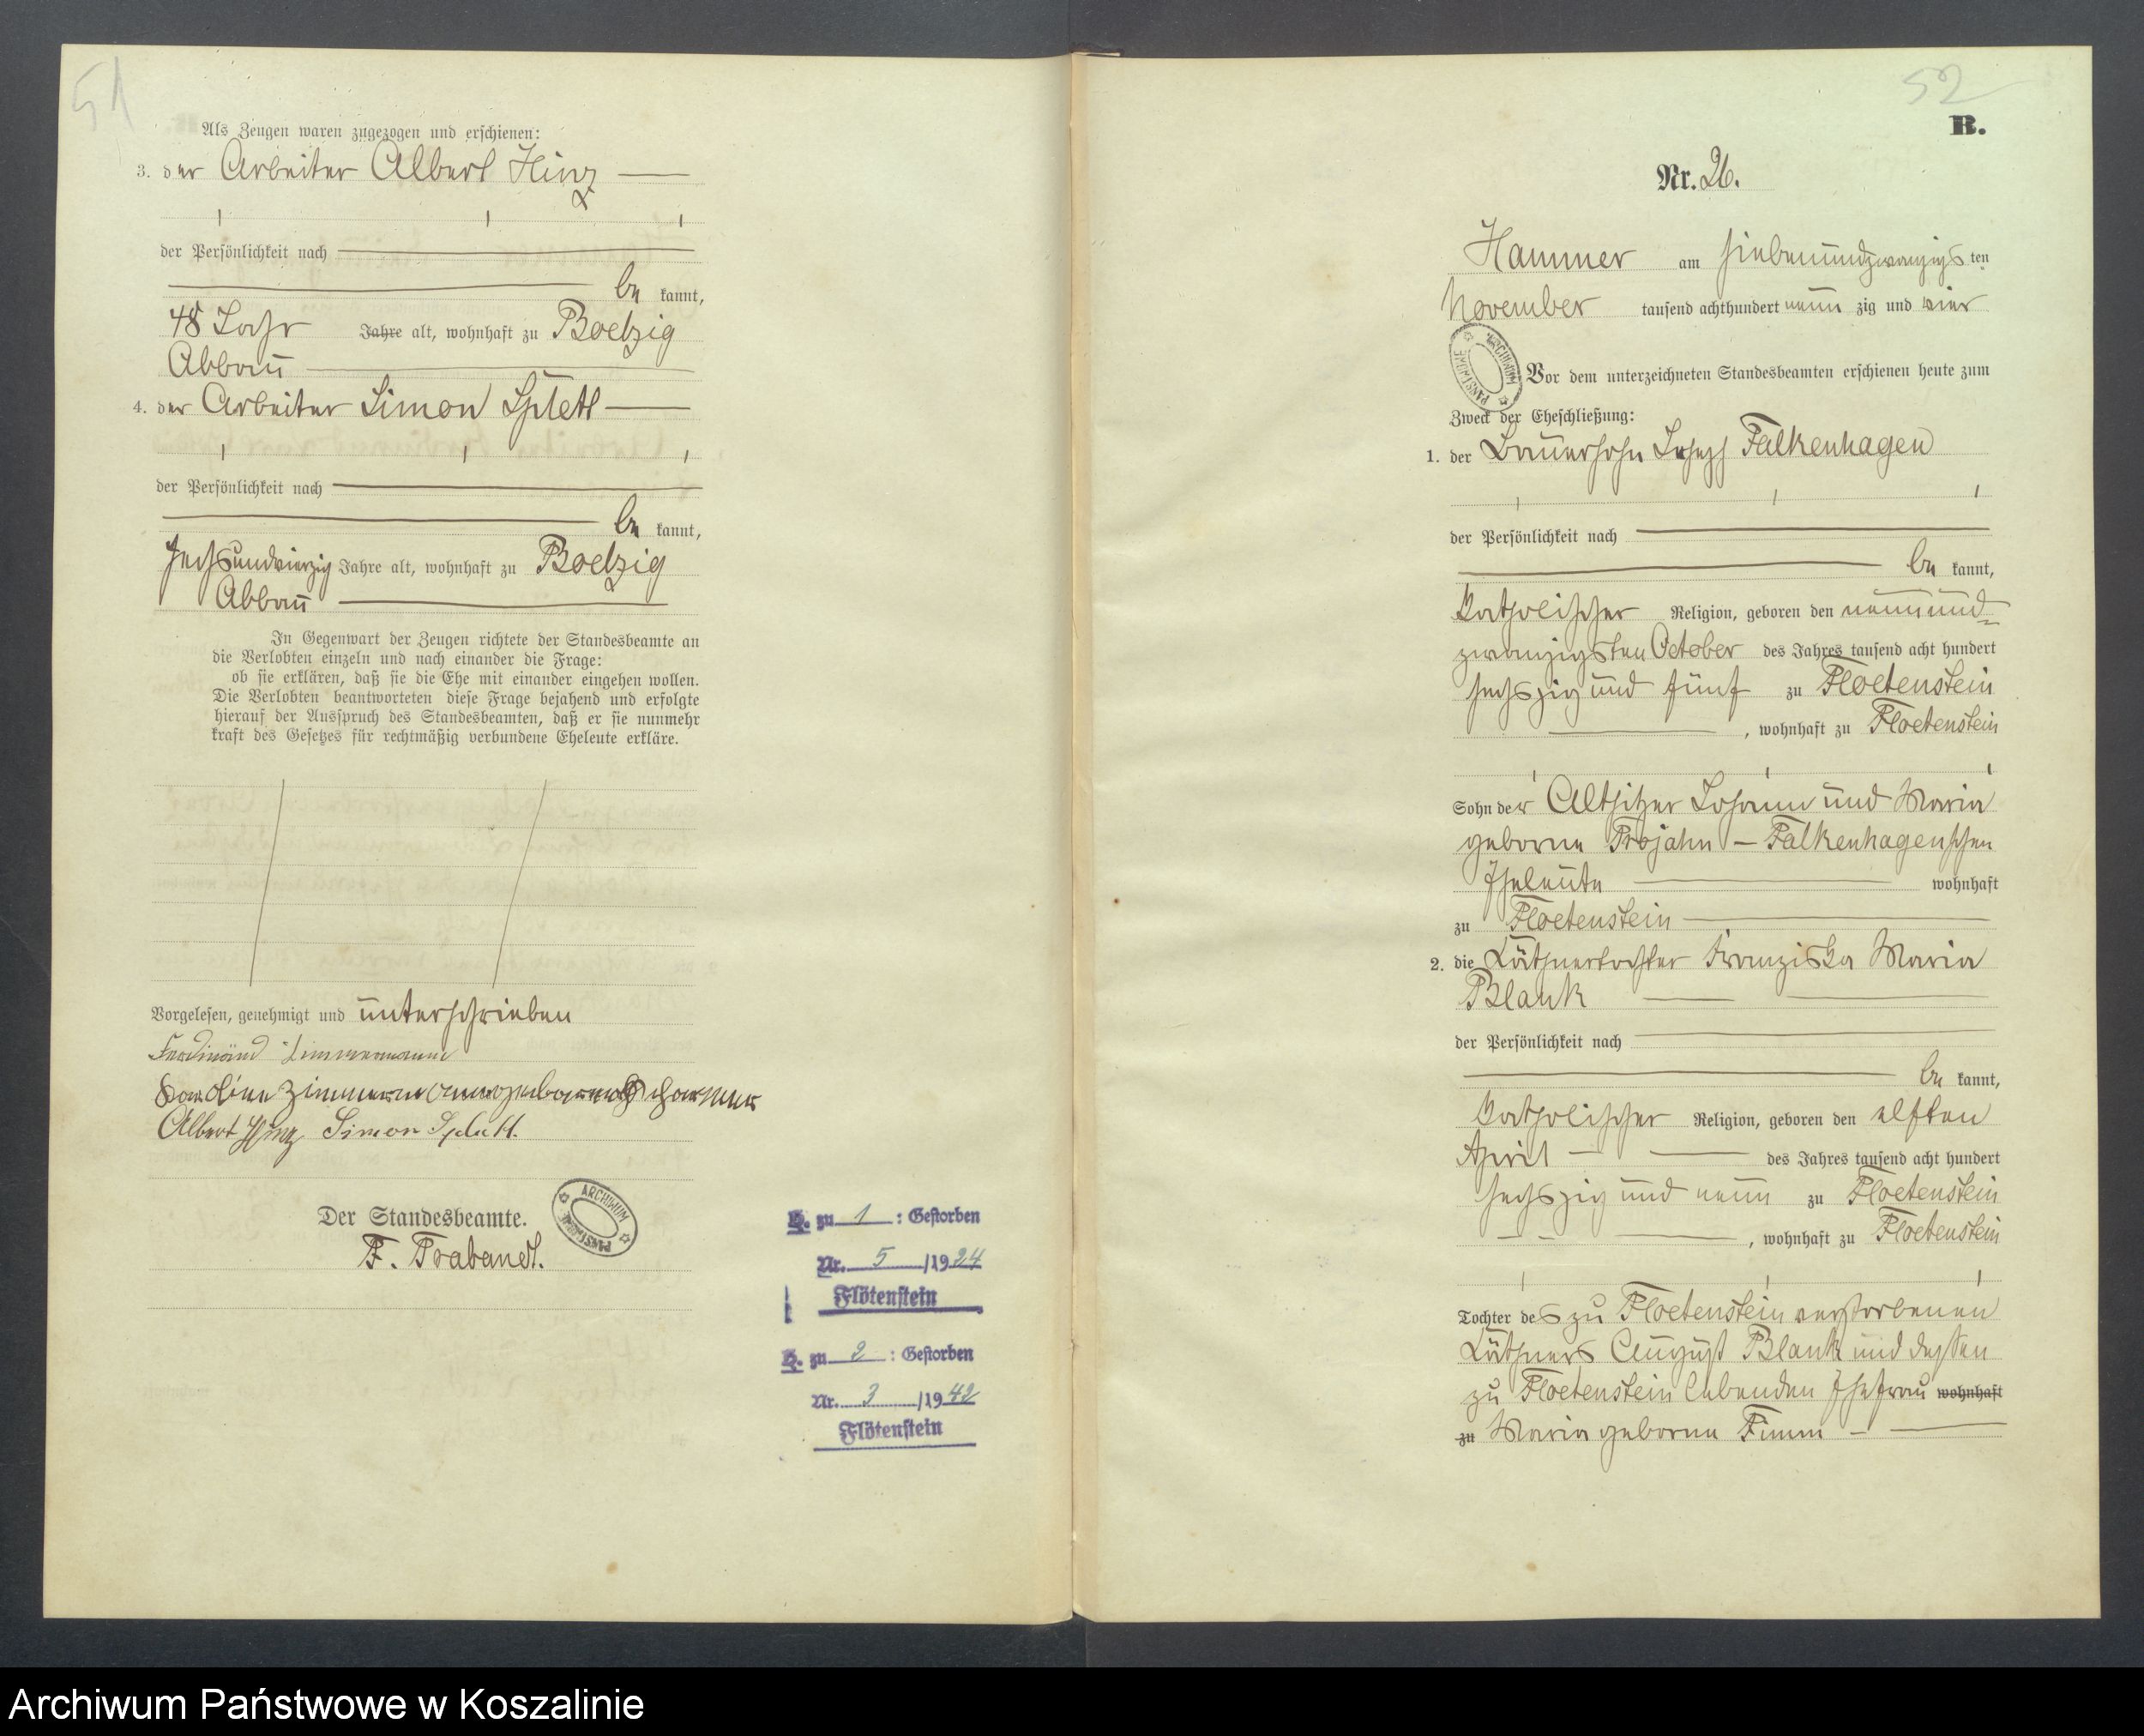 51
Als Zeugen waren zugezogen und erschienen:
3. der Arbeiter Albert Hinz
der Persönlichkeit nach
be kannt,
48 Jahr Jahre alt, wohnhaft zu Boelzig
Abbau
4. der Arbeiter Simon Splett
der Persönlichkeit nach
be kannt,
sechsundvierzig Jahre alt, wohnhaft zu Boelzig
Abbau
In Gegenwart der Zeugen richtete der Standesbeamte an
die Verlobten einzeln und nach einander die Frage:
ob sie erklären, daß sie die Ehe mit einander eingehen wollen.
Die Verlobten beantworteten diese Frage bejahend und erfolgte
hierauf der Ausspruch des Standesbeamten, daß er sie nunmehr
kraft des Gesetzes für rechtmäßig verbundene Eheleute erkläre.
Vorgelesen, genehmigt und unterschrieben
Ferdinand Zimmermann
Karoline Zimmermann geborene
Albert Hinz Simon Splett.
Der Standesbeamte.
F. Trabandt.
ARCHIWUM PAŃSTWOWE
H. zu 1 : Gestorben
Nr. 5 /1924
Flötenstein
H. zu 2 : Gestorben
Nr. 3 /1942
Flötenstein
52
B.
Nr. 26.
Hammer am siebenundzwanzigs ten
November tausend achthundert neun zig und vier
ARCHIWUM PAŃSTWOWE
Vor dem unterzeichneten Standesbeamten erschienen heute zum
Zweck der Eheschließung:
1. der Bauersohn Joseph Falkenhagen
der Persönlichkeit nach
be kannt,
katholischer Religion, geboren den neunund-
zwanzigsten October des Jahres tausend acht hundert
sechszig und fünf zu Floetenstein
, wohnhaft zu Floetenstein
Sohn der Altsitzer Johann und Maria
geborne Trojahn – Falkenhagenschen
Eheleute wohnhaft
zu Floetenstein
2. die Käthnertochter Franziska Maria
Blank
der Persönlichkeit nach
be kannt,
katholischer Religion, geboren den elften
April des Jahres tausend acht hundert
sechszig und neun zu Floetenstein
, wohnhaft zu Floetenstein
Tochter des zu Floetenstein verstorbenen
Käthners August Blank und dessen
zu Floetenstein lebenden Ehefrau wohnhaft
zu Maria geborne Timm
Archiwum Państwowe w Koszalinie